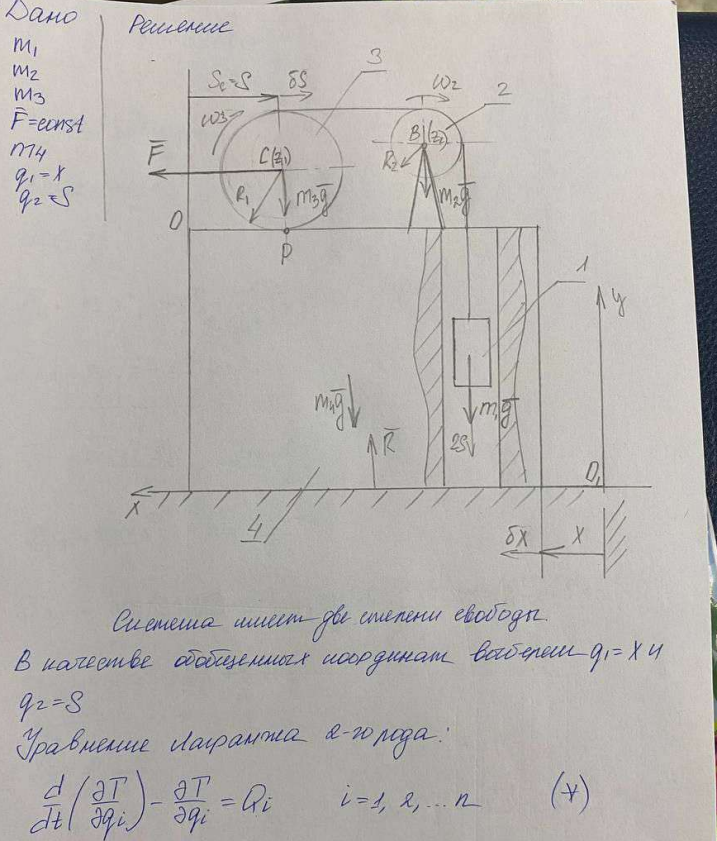 Дано
Решение
m₁
m₂
m₃
F̅=const
m₄
q₁=x
q₂=S
S_c=S
δS
3
ω₂
2
ω₃
F̅
C(z₁)
B(z₂)
R₂
R₁
m₃g̅
m₂g̅
O
P
1
y
m₄g̅
R̅
m₁g̅
2S
O₁
x
4
δx
x
Система имеет две степени свободы.
В качестве обобщенных координат выберем q₁=x и
q₂=S
Уравнение Лагранжа 2-го рода:
d/dt(∂T/∂q̇i) - ∂T/∂qi = Qi i=1, 2, ... n (*)